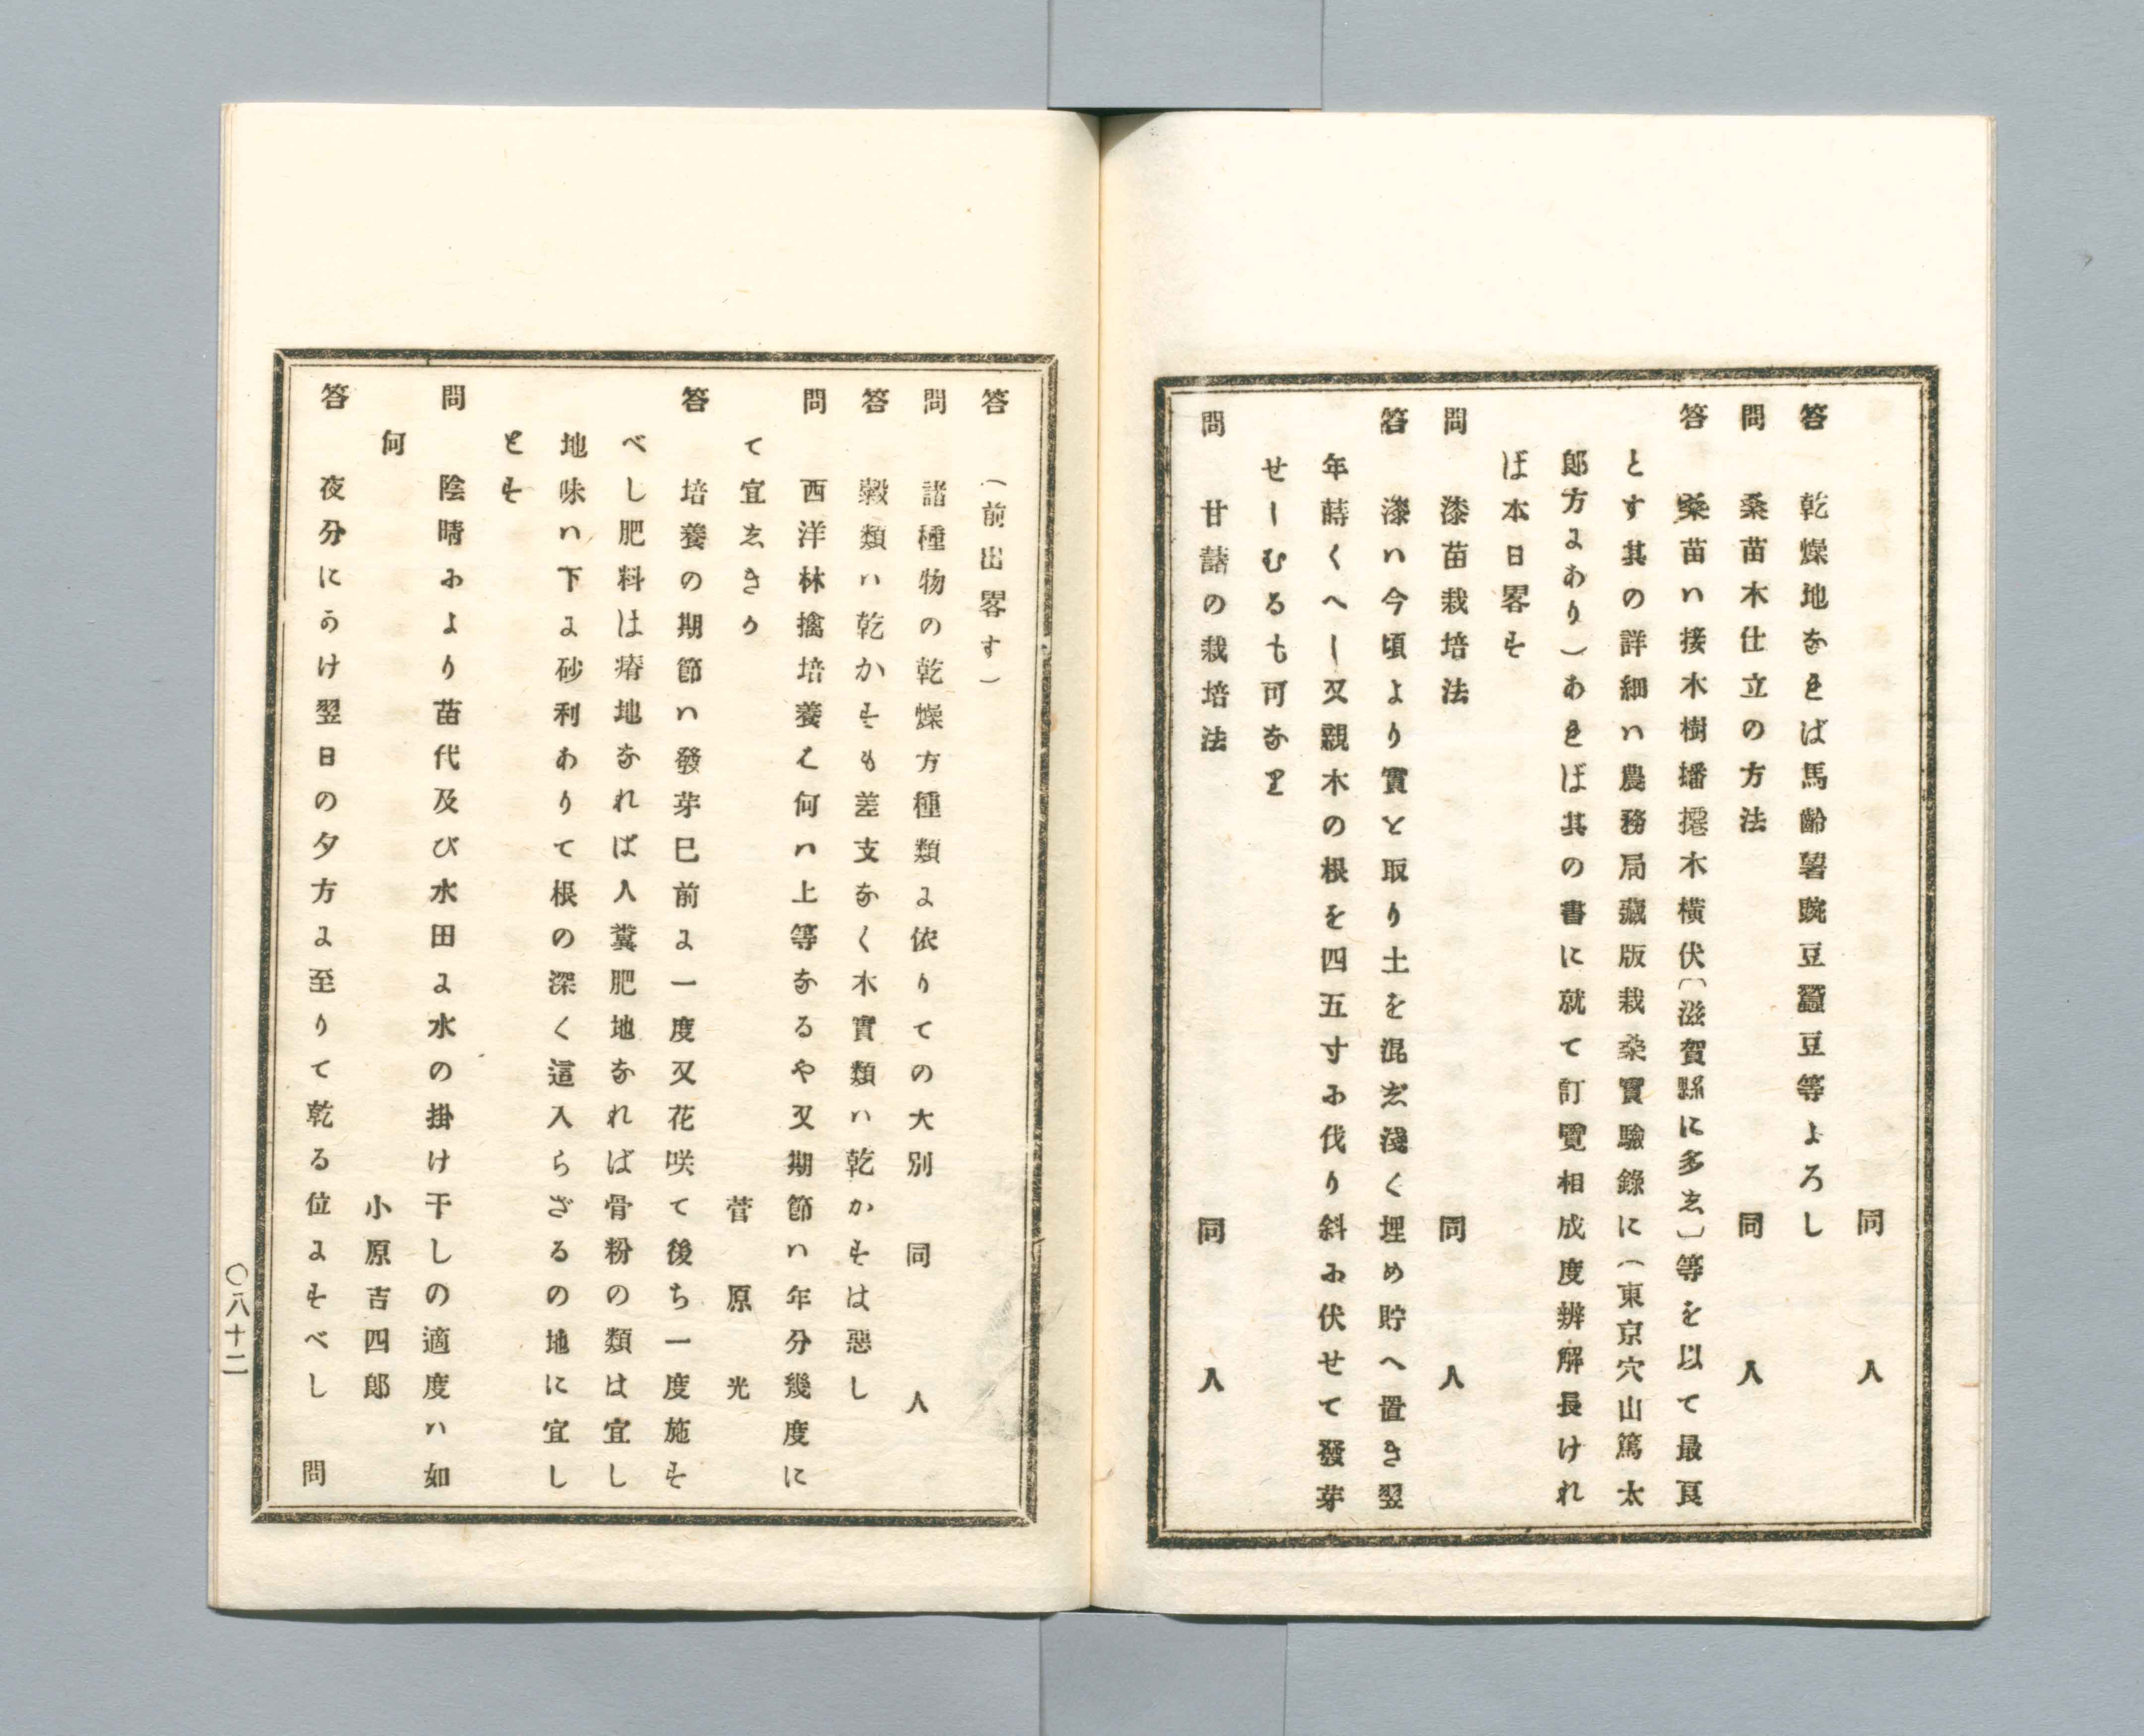 同人
答 乾燥地なれば馬齢薯豌豆蠶豆等よろし
問 桑苗木仕立の方法 同人
答 桑苗ハ接木樹墦攇木横伏〔滋賀縣に多ゑ〕等を以て最良
とす其の詳細ハ農務局藏版栽桒實驗錄に（東京穴山篤太
郎方よあり）あれば其の書に就て訂覽相成度辨解長けれ
ば本日畧す
問 漆苗栽培法 同人
答 漆ハ今頃より實と取り土を混ぜ淺く埋め貯へ置き翌
年蒔くへし又親木の根を四五寸に伐り斜に伏せて發芽
せしむるも可なり
問 甘藷の栽培法 同人
答 （前出畧す）
問 諸種物の乾燥方種類よ依りての大別 同人
答 穀類ハ乾かすも差支なく木實類ハ乾かすは惡し
問 西洋林擒培養ハ何ハ上等なるや又期節ハ年分幾度に
て宜ゑきか 菅原光
答 培養の期節ハ發芽已前よ一度又花咲て後ち一度施す
べし肥料は瘠地なれば人糞肥地なれば骨粉の類は宜し
地味ハ下よ砂利ありて根の深く這入らざるの地に宜し
とす
問 陰晴により苗代及び水田よ水の掛け干しの適度ハ如
何 小原吉四郎
答 夜分にうけ翌日の夕方よ至りて乾る位よすべし 問
〇八十二